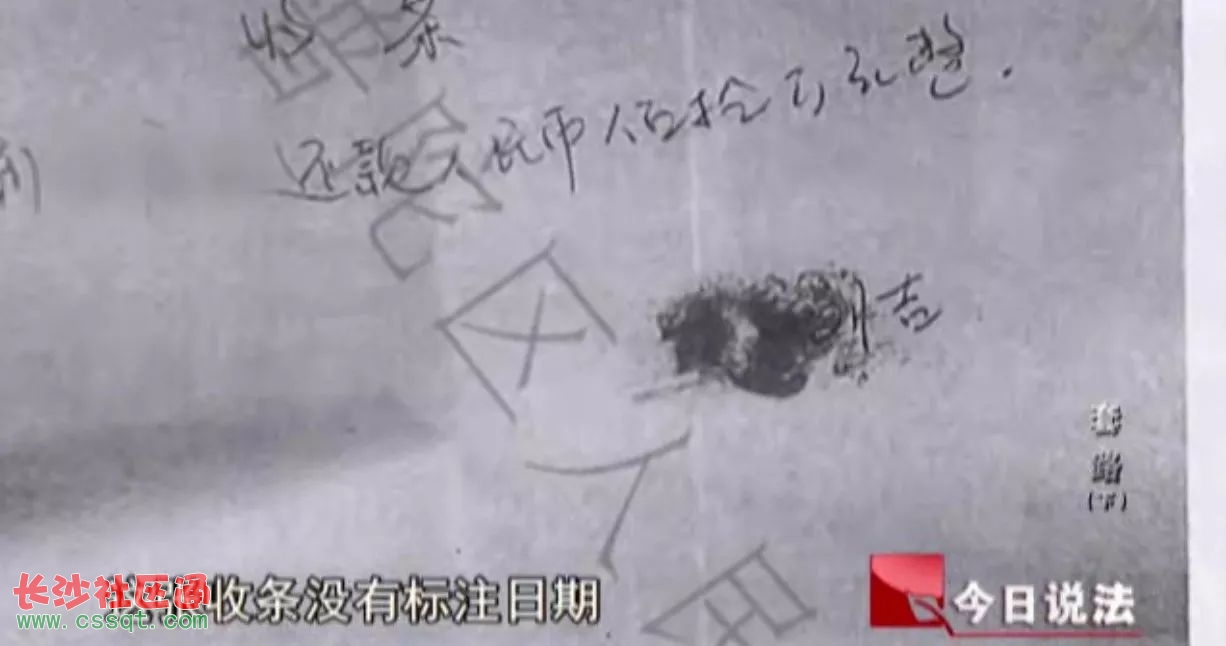 收条
到
还款人民币伍拾万元整.
吉
套路
(下)
收条没有标注日期
长沙社区通
www.cssqt.com
今日说法